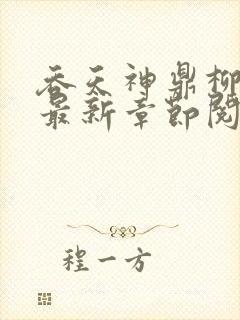 吞天神鼎柳
最新章节阅
程一方